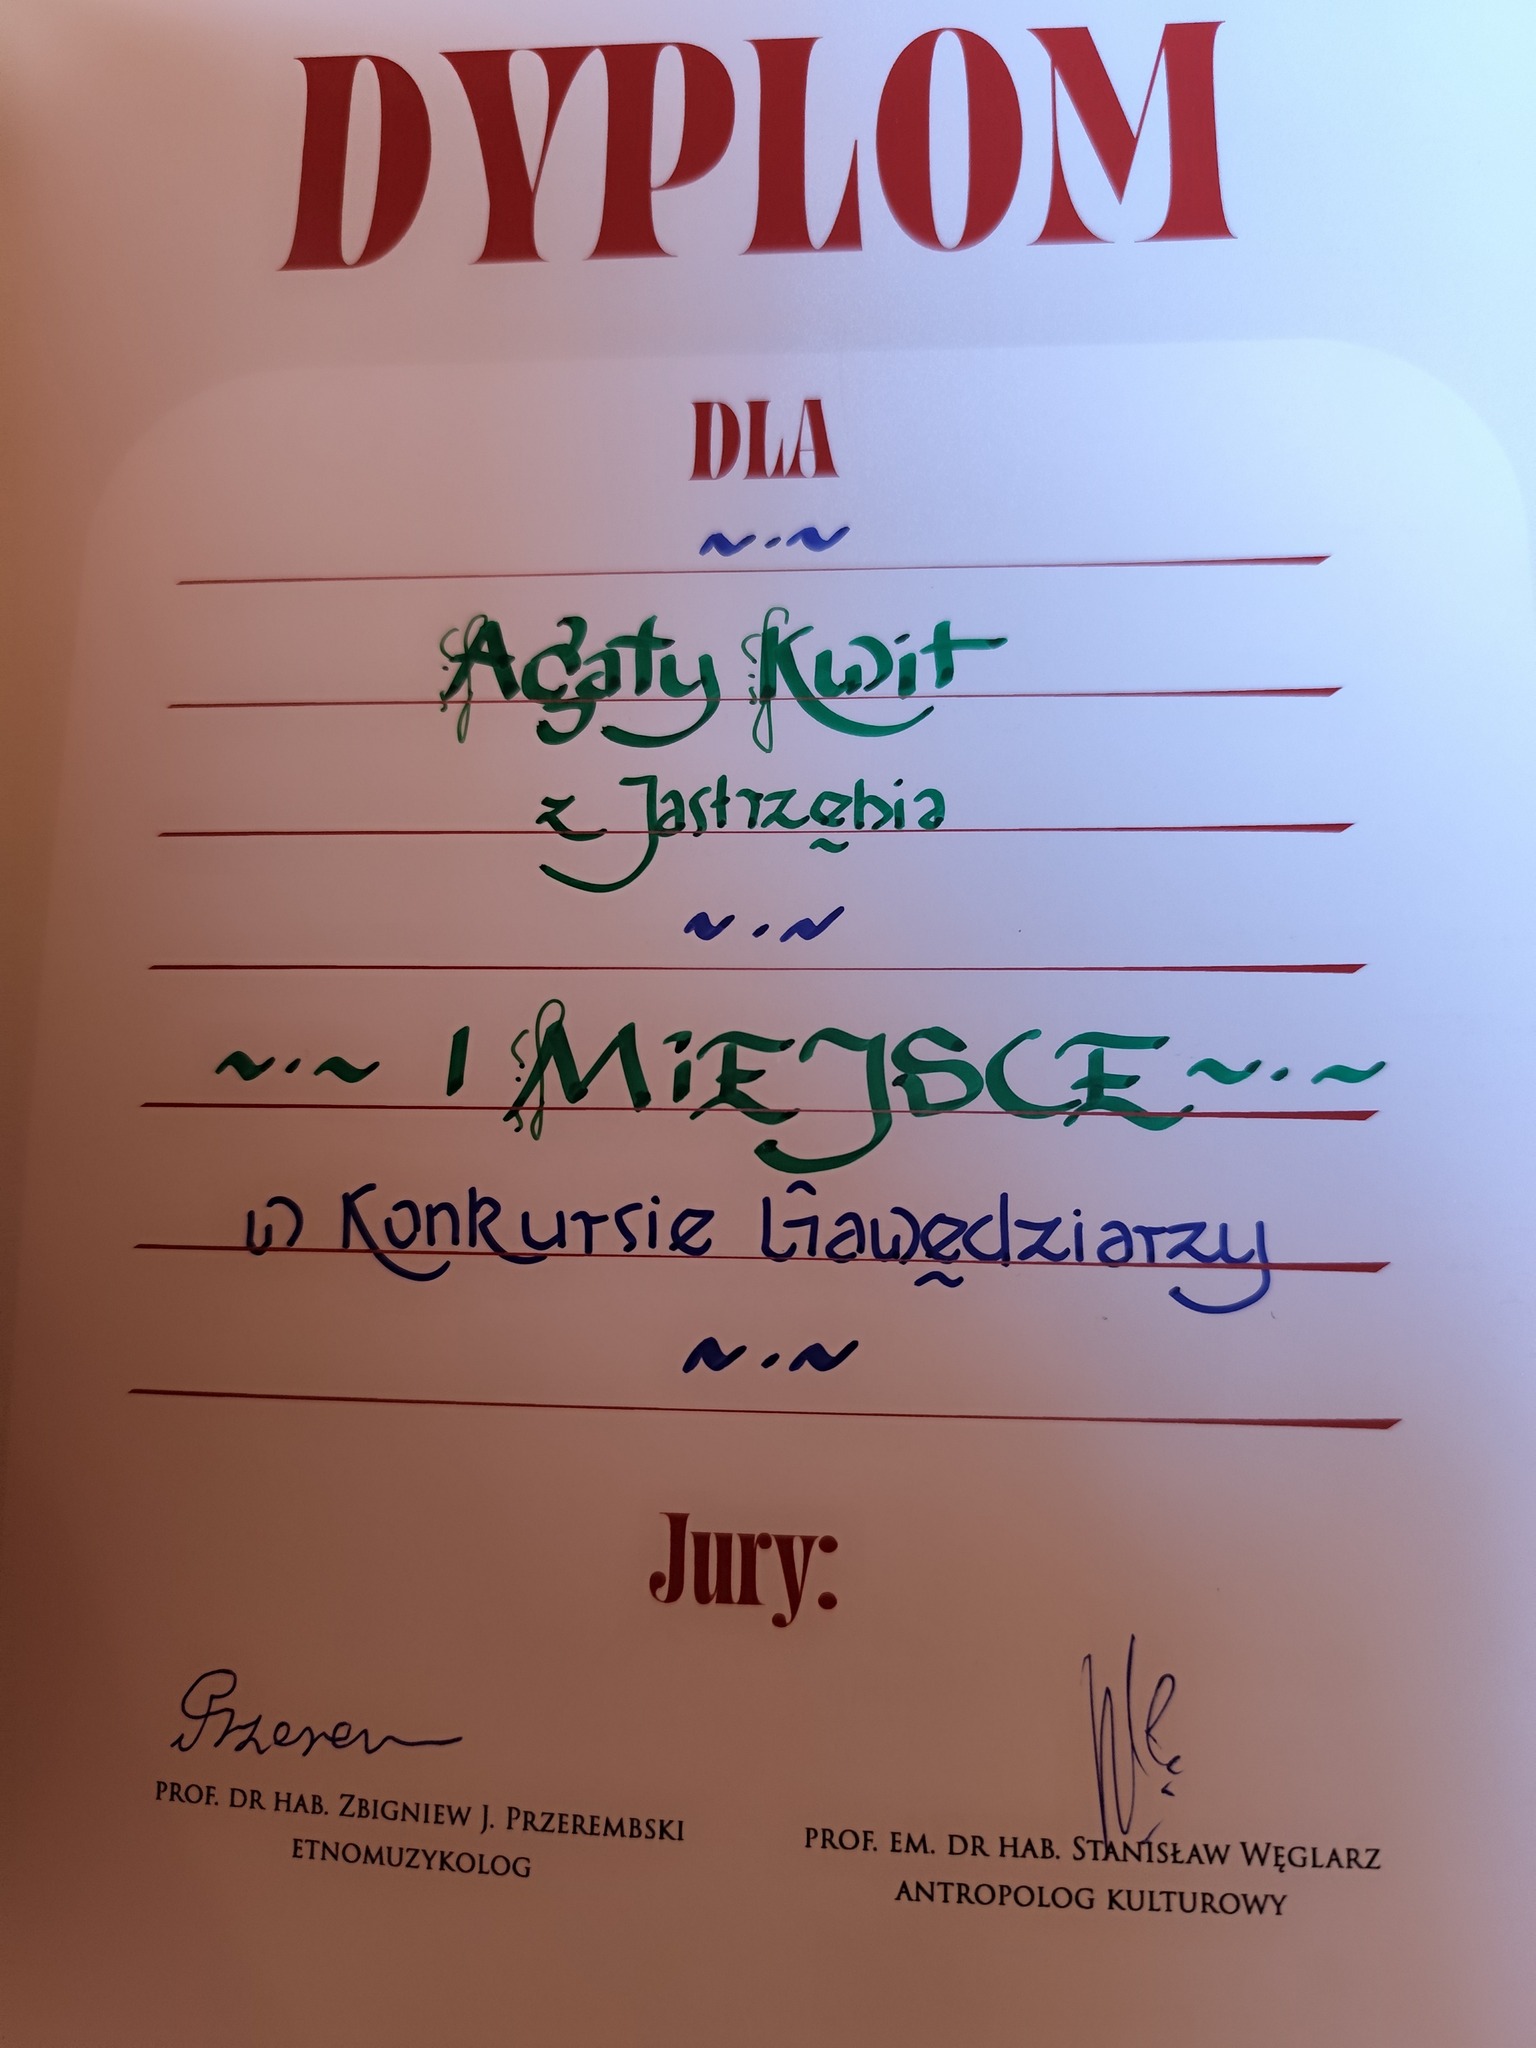 DYPLOM
DLA
~·~
Agaty Kwit
z Jastrzębia
~·~
~·~ I MiEJSCE ~·~
w Konkursie Gawędziarzy
~·~
Jury:
Przerem
PROF. DR HAB. ZBIGNIEW J. PRZEREMBSKI
ETNOMUZYKOLOG
PROF. EM. DR HAB. STANISŁAW WĘGLARZ
ANTROPOLOG KULTUROWY